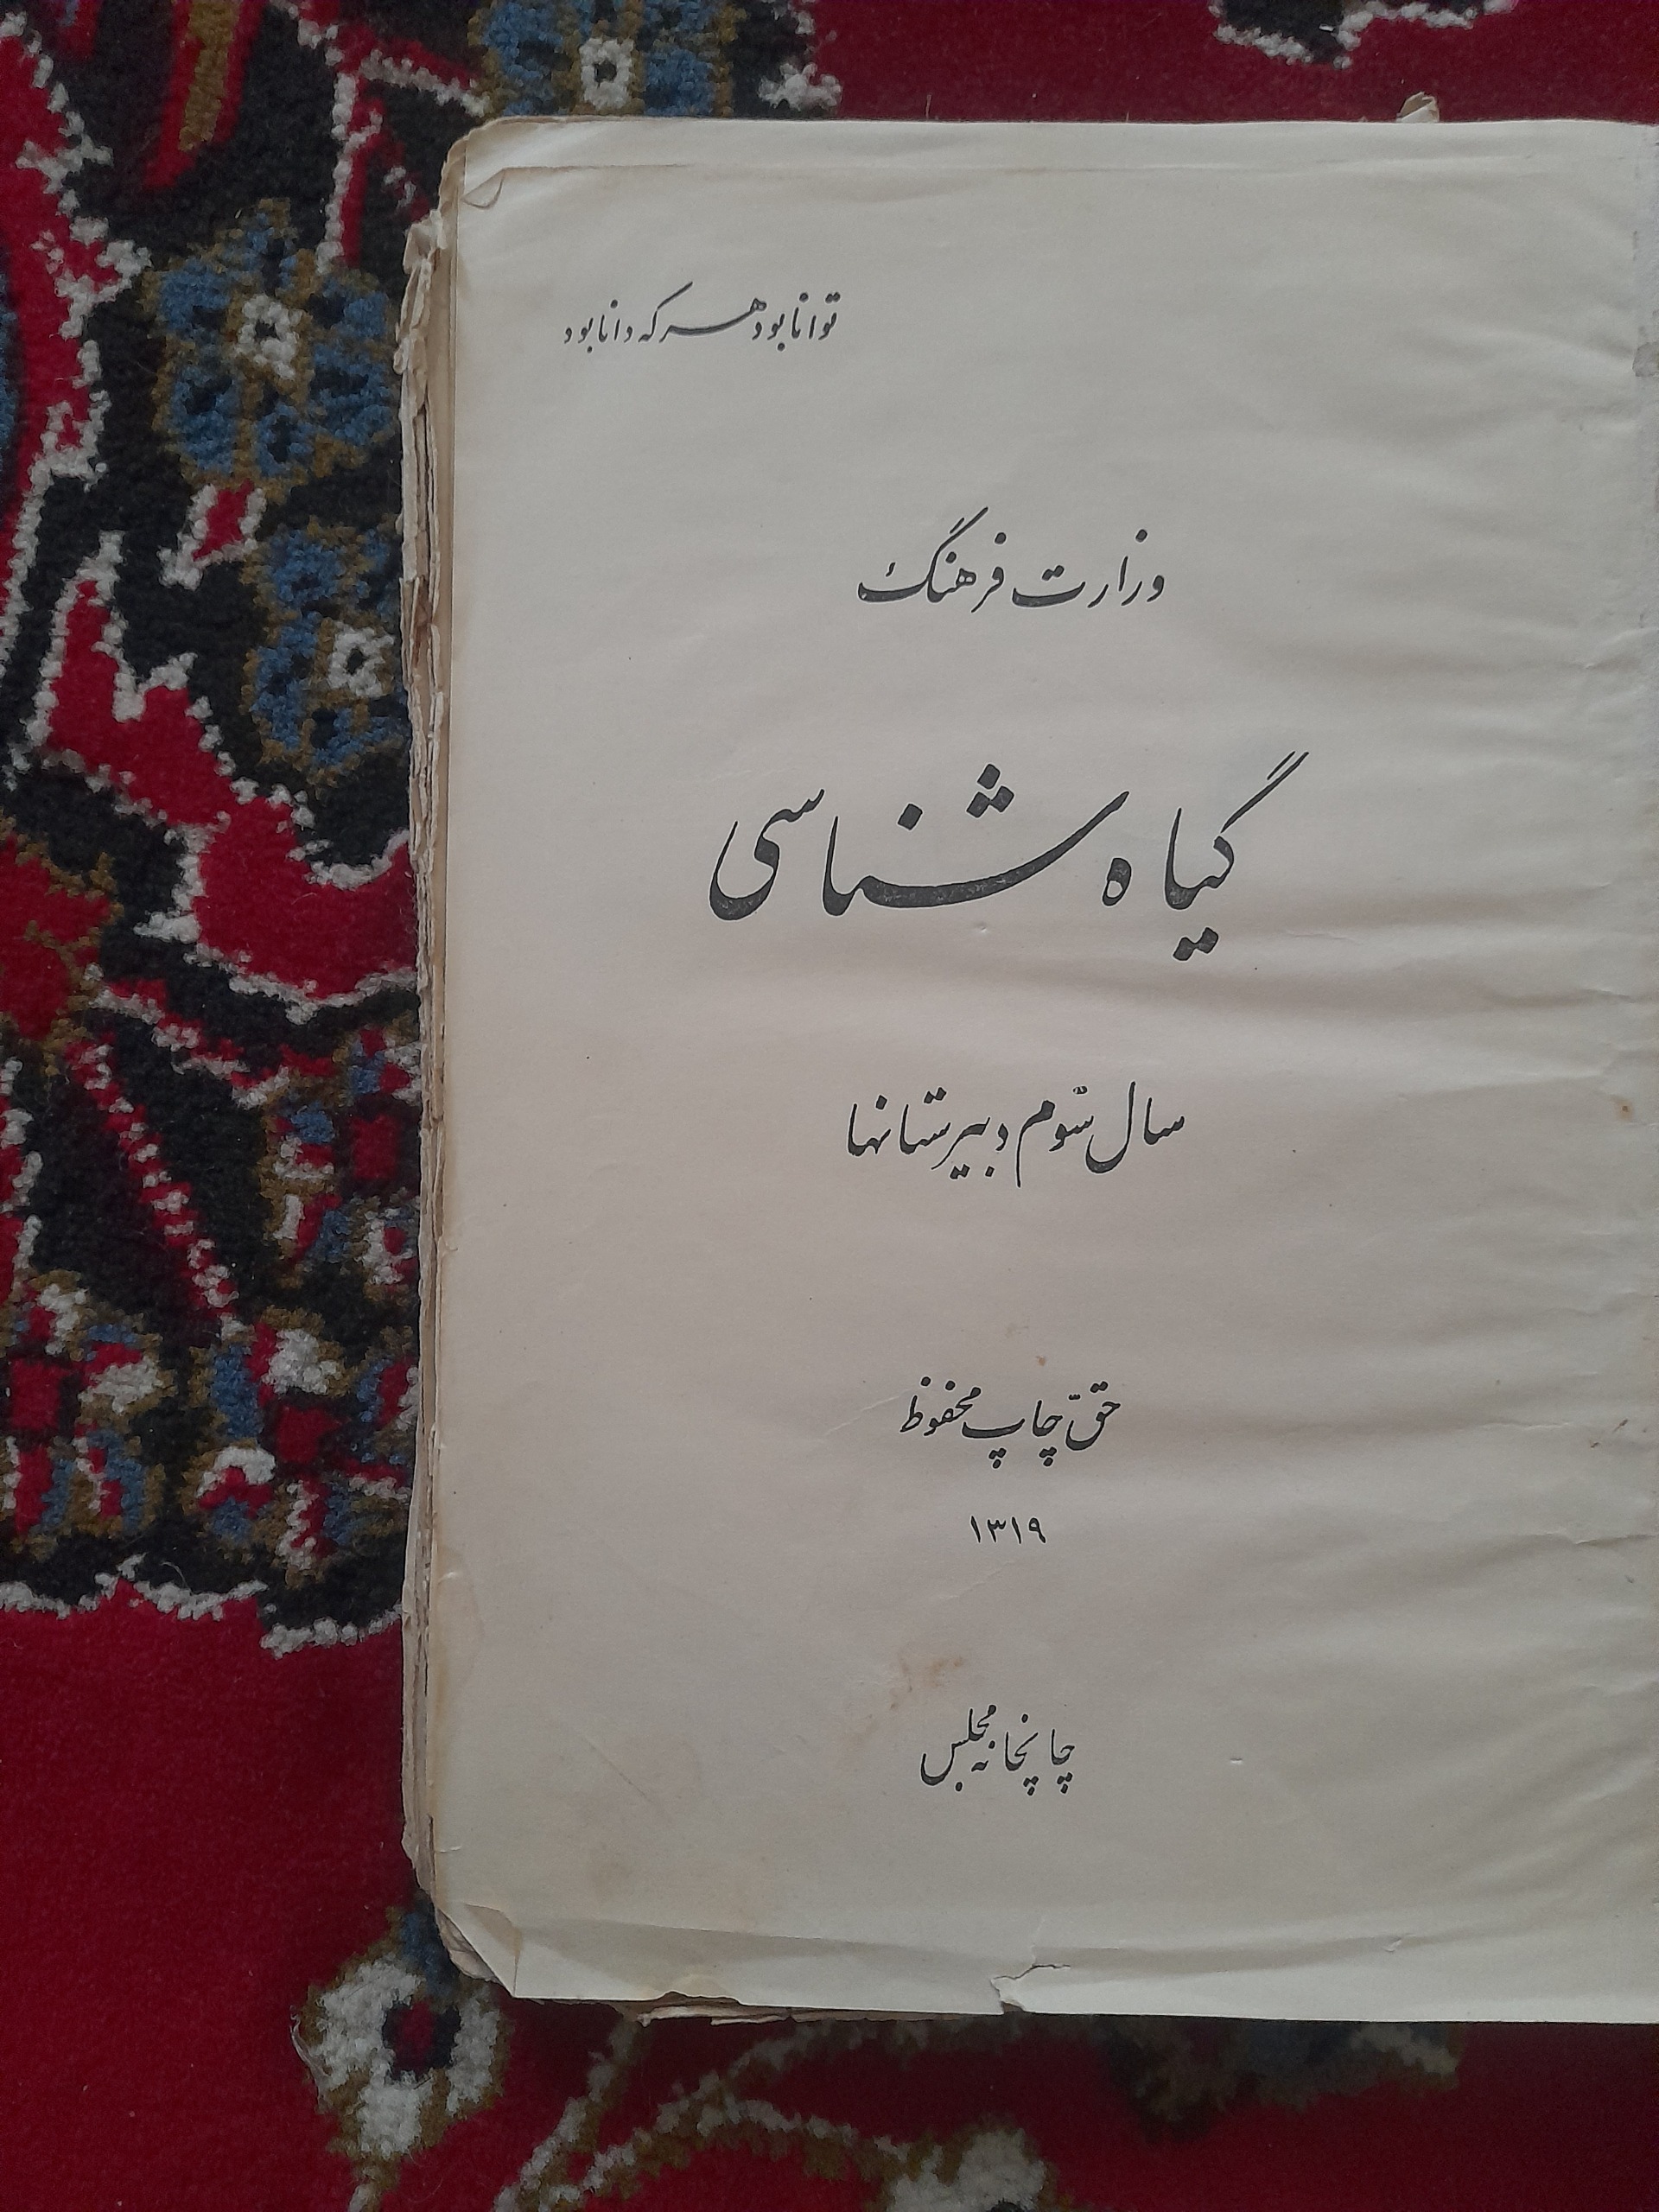 توانا بود هر که دانا بود
وزارت فرهنگ
گیاه شناسی
سال سوّم دبیرستانها
حقّ چاپ محفوظ
۱۳۱۹
چاپخانه مجلس